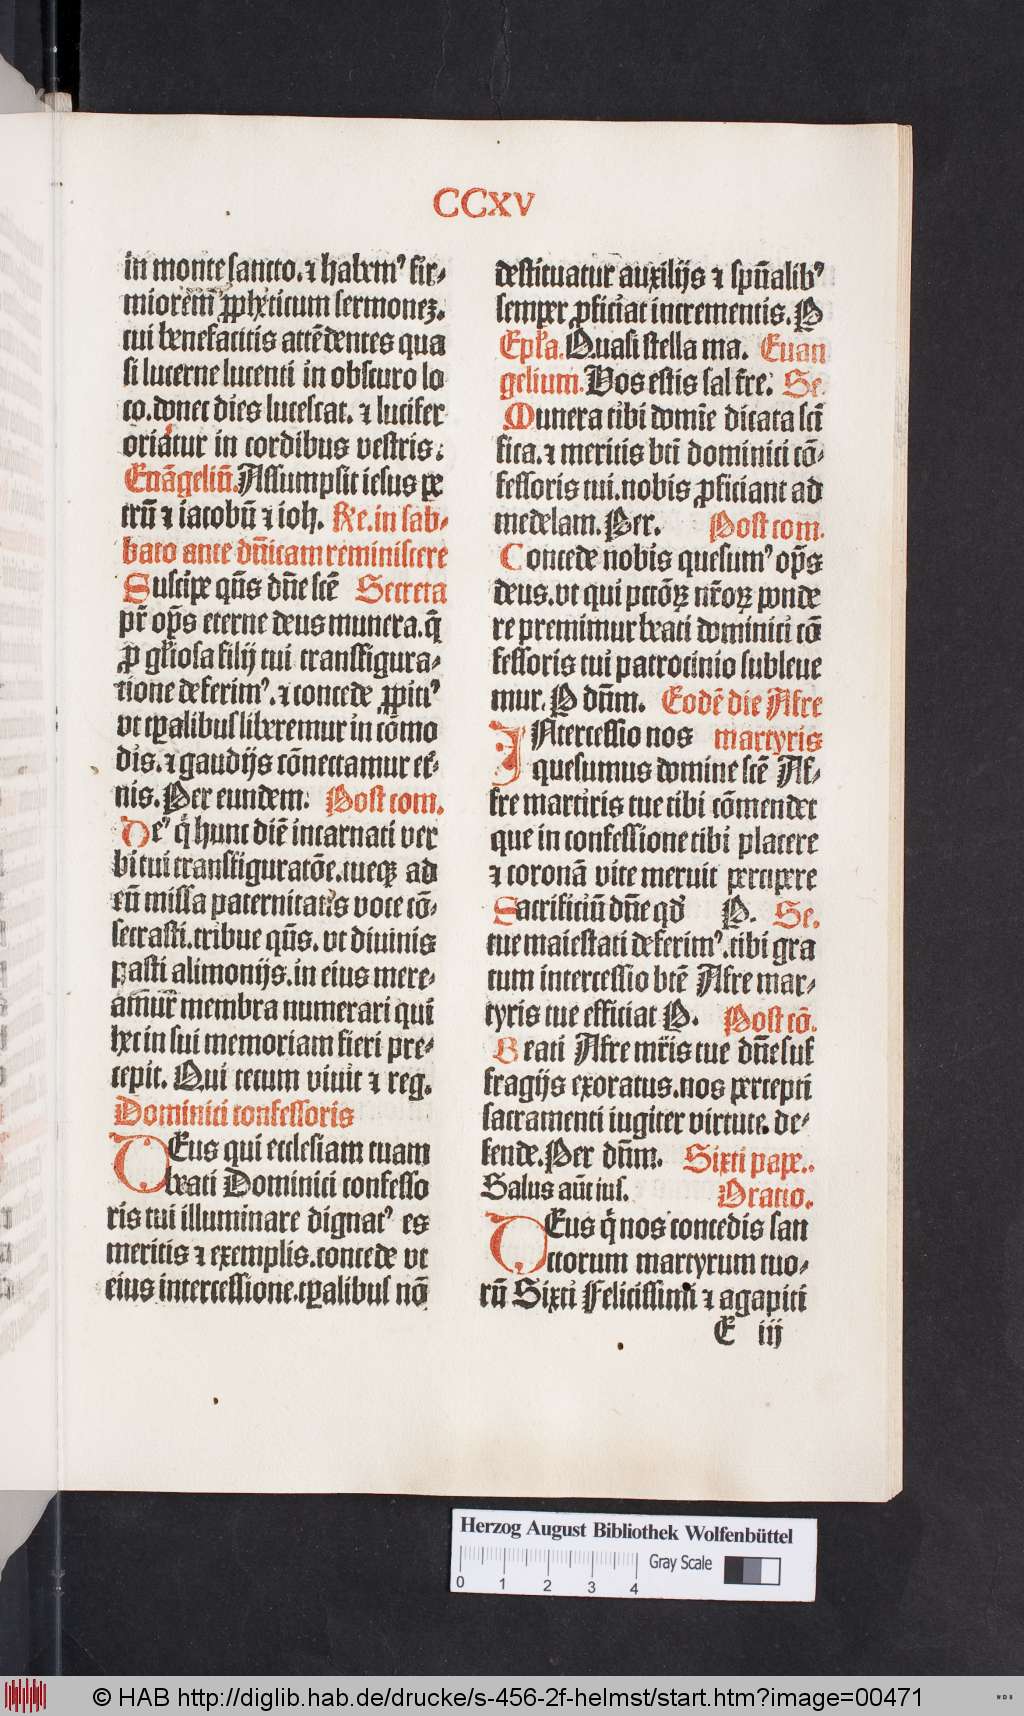 CCXV
in monte sancto. ⁊ habemꝰ fir⸗
miorem̄ ꝓpheticum sermonez.
cui benefacitis attēdentes qua
si lucerne lucenti in obscuro lo
co. donec dies lucescat. ⁊ lucifer
oriatur in cordibus vestris:
Euāgeliū. Assumpsit iesus pe
trū ⁊ iacobū ⁊ ioh. Re. in sab⸗
bato ante dn̄icam reminiscere
Suscipe qn̄s dn̄e scē Secreta
pr̄ op̄s eterne deus munera. q̄
ꝓ gl̓iosa filij tui transfigura⸗
tione deferimꝰ. ⁊ concede ꝓpitiꝰ
vt tp̄alibus liberemur in cōmo
dis. ⁊ gaudijs cōnectamur et̓⸗
nis. Per eundem: Post com.
Deꝰ q̇ hunc diē incarnati ver
bi tui transfiguratōe. tueqꝫ ad
eū missa paternitatis voce cō⸗
secrasti. tribue qn̄s. vt diuinis
pasti alimonijs. in eius mere⸗
amur̄ membra numerari qui
hec in sui memoriam fieri pre⸗
cepit. Qui tecum viuit ⁊ reg.
Dominici confessoris
DEus qui ecclesiam tuam
beati Dominici confesso
ris tui illuminare dignatꝰ es
meritis ⁊ exemplis. concede vt
eius intercessione. tp̄alibus nō
destituatur auxilijs ⁊ spūalibꝰ
semper ꝓficiat incrementis. P
Epl̓a. Quasi stella ma. Euan
gelium. Vos estis sal tre: Se.
Munera tibi domīe dicata scī
fica. ⁊ meritis bti̅ dominici cō⸗
fessoris tui. nobis ꝓficiant ad
medelam. Per. Post com.
Concede nobis quesumꝰ op̄s
deus. vt qui pctōꝝ nr̄oꝝ ponde
re premimur beati dominici cō
fessoris tui patrocinio subleue
mur. P dn̄m. Eodē die Afre
INtercessio nos martyris
quesumus domine scē Af⸗
fre martiris tue tibi cōmendet
que in confessione tibi placere
⁊ coronā vite meruit percipere
Sacrificiū dn̄e qd̓ P. Se.
tue maiestati deferimꝰ. tibi gra
tum intercessio btē Afre mar⸗
tyris tue efficiat P. Post cō.
Beati Afre mr̄is tue dn̄e suf
fragijs exoratus. nos percepti
sacramenti iugiter virtute. de⸗
fende. Per dn̄m. Sixti pape..
Salus aūt ius. Oratio.
DEus q̇ nos concedis san
ctorum martyrum tuo⸗
rū Sixti Felicissimi ⁊ agapiti
E iij
Herzog August Bibliothek Wolfenbüttel
Gray Scale
0 1 2 3 4
© HAB http://diglib.hab.de/drucke/s-456-2f-helmst/start.htm?image=00471